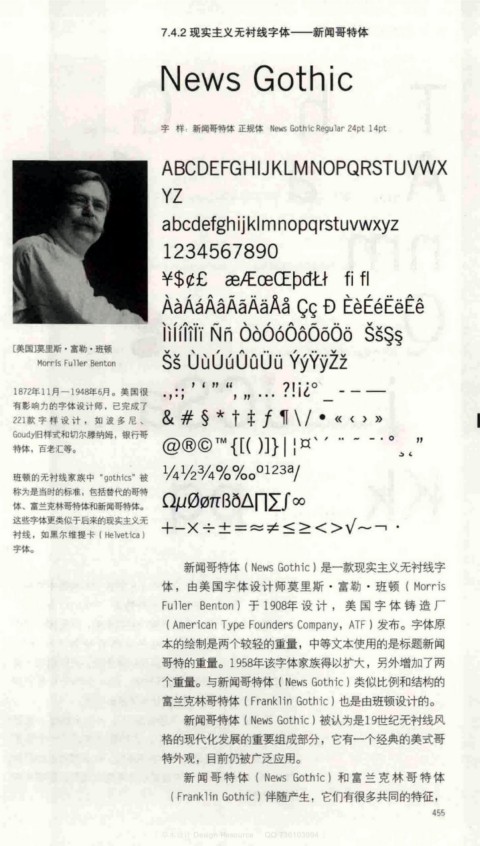 7.4.2 现实主义无衬线字体——新闻哥特体
News Gothic
字 样：新闻哥特体 正规体 News Gothic Regular 24pt 14pt
ABCDEFGHIJKLMNOPQRSTUVWX
YZ
abcdefghijklmnopqrstuvwxyz
1234567890
¥$¢£ æÆœŒþđŁł fi fl
ÀàÁáÂâÃãÄäÅå Çç Ð ÈèÉéËëÊê
ÌìÍíÎîÏï Ññ ÒòÓóÔôÕõÖö ŠšŞş
Šš ÙùÚúÛûÜü ÝýŸÿŽž
.,:; ’ ‘ ” “, „ … ?!i¿° _ - – —
& # § * † ‡ ƒ ¶ \ / • « ‹ › »
@®©™{[( )]}|¦¤`´ ¨ ~ ¯ ˙ ° ¸ ˛ ”
¼½¾%‰º¹²³ª/
ΩµØøπßðΔ∏∑∫∞
+−×÷±=≈≠≤≥<>√~¬ ·
[美国]莫里斯·富勒·班顿
Morris Fuller Benton
1872年11月—1948年6月。美国很
有影响力的字体设计师，已完成了
221款字样设计，如波多尼、
Goudy旧样式和切尔滕纳姆，银行哥
特体，百老汇等。
班顿的无衬线家族中“gothics”被
称为是当时的标准，包括替代的哥特
体、富兰克林哥特体和新闻哥特体。
这些字体更类似于后来的现实主义无
衬线，如黑尔维提卡（Helvetica）
字体。
新闻哥特体（News Gothic）是一款现实主义无衬线字
体，由美国字体设计师莫里斯·富勒·班顿（Morris
Fuller Benton）于1908年设计，美国字体铸造厂
（American Type Founders Company，ATF）发布。字体原
本的绘制是两个较轻的重量，中等文本使用的是标题新闻
哥特的重量。1958年该字体家族得以扩大，另外增加了两
个重量。与新闻哥特体（News Gothic）类似比例和结构的
富兰克林哥特体（Franklin Gothic）也是由班顿设计的。
新闻哥特体（News Gothic）被认为是19世纪无衬线风
格的现代化发展的重要组成部分，它有一个经典的美式哥
特外观，目前仍被广泛应用。
新闻哥特体（News Gothic）和富兰克林哥特体
（Franklin Gothic）伴随产生，它们有很多共同的特征，
455